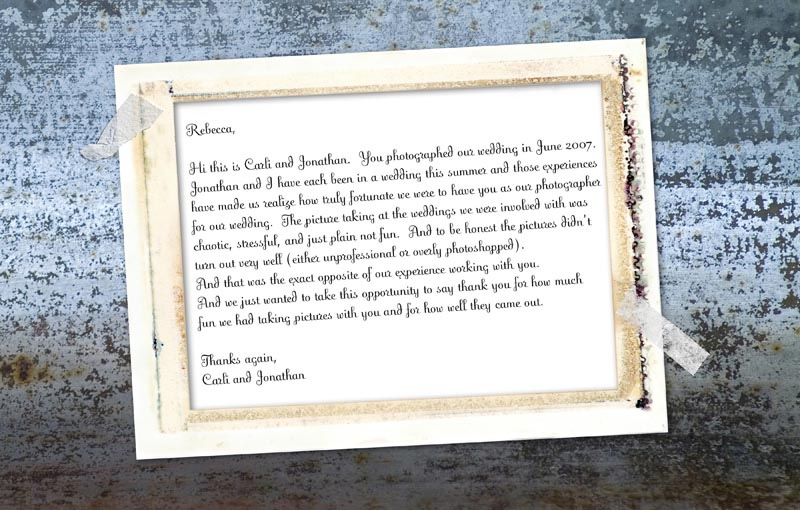 Rebecca,
Hi this is Carli and Jonathan.  You photographed our wedding in June 2007.
Jonathan and I have each been in a wedding this summer and those experiences
have made us realize how truly fortunate we were to have you as our photographer
for our wedding.  The picture taking at the weddings we were involved with was
chaotic, stressful, and just plain not fun.  And to be honest the pictures didn't
turn out very well (either unprofessional or overly photoshopped).
And that was the exact opposite of our experience working with you.
And we just wanted to take this opportunity to say thank you for how much
fun we had taking pictures with you and for how well they came out.
Thanks again,
Carli and Jonathan